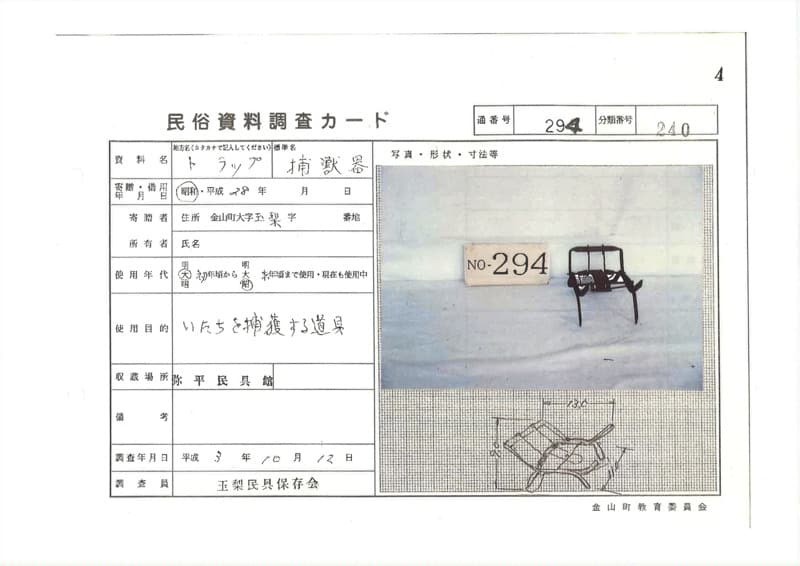 4
民俗資料調査カード
通番号 294 分類番号 240
資料名 地方名(カタカナで記入してください) トラップ 標準名 捕獣器
写真・形状・寸法等
寄贈・借用年月日 昭和・平成 28年 月 日
寄贈者 住所 金山町大字玉梨字 番地
所有者 氏名
使用年代 明大昭 初年頃から 明大昭 末年頃まで使用・現在も使用中
NO-294
使用目的 いたちを捕獲する道具
収蔵場所 弥平民具館
備考
13.0
調査年月日 平成 3年 10月 12日
調査員 玉梨民具保存会
金山町教育委員会